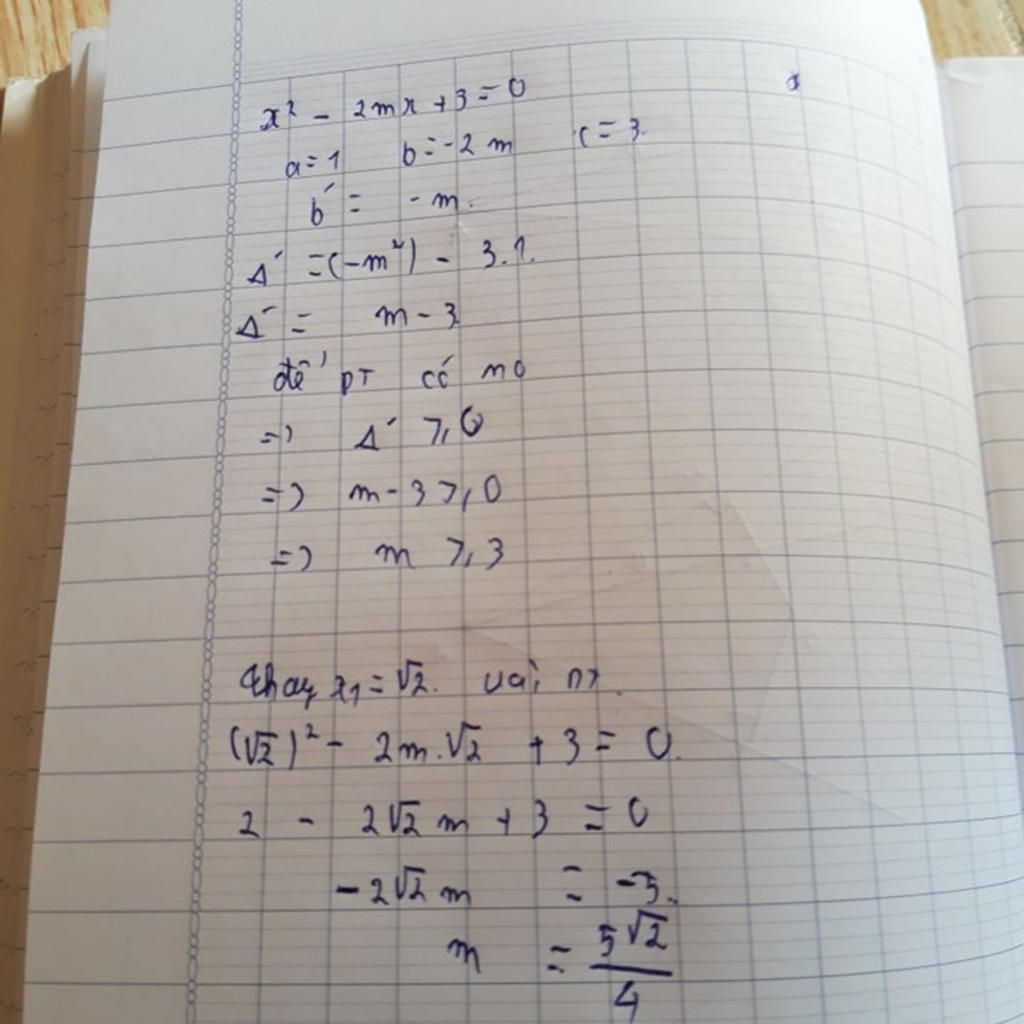 x² - 2mx + 3 = 0
a = 1 b = -2 m c = 3.
b' = - m.
Δ' = (-m²) - 3.1.
Δ' = m - 3
để PT có no
=> Δ' ≥ 0
=> m - 3 ≥ 0
=> m ≥ 3
thay x₁ = √2. vào
(√2)² - 2m.√2 + 3 = 0.
2 - 2√2 m + 3 = 0
- 2√2 m = -5.
m = 5√2/4